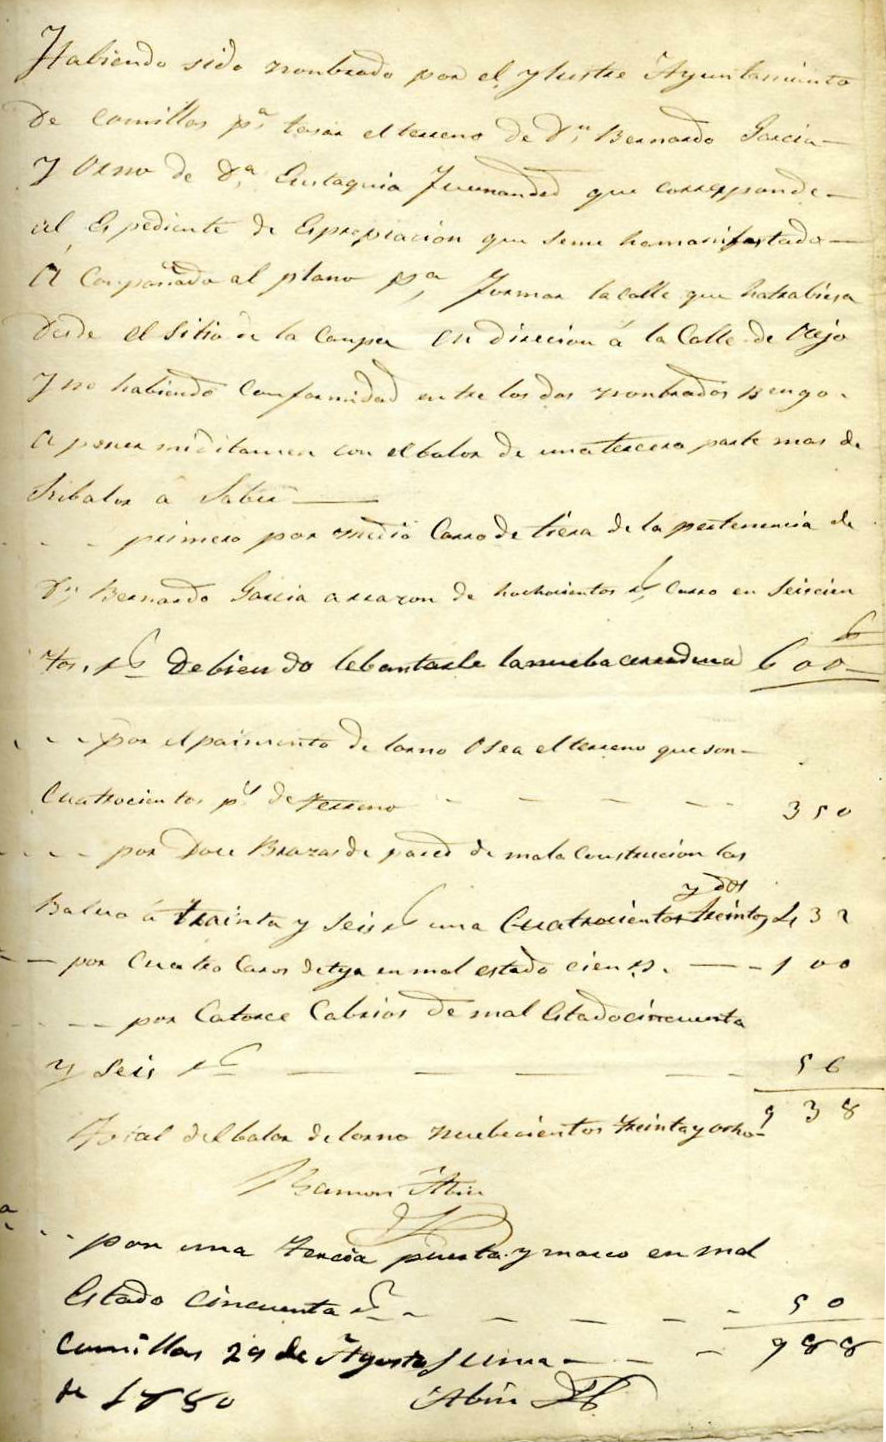 Habiendo sido nonbrado por el ylustre Ayuntamiento
De Comillas pª tasar el terreno de Dⁿ Bernardo Garcia
Y Orno de Dª Eustaquia Fernanded que corresponde
al Espediente de Espropiacion que seme hamanifestado
A Conpañado al plano pª formar la calle que hatrabiesa
Desde el Sitio de la Canpa en direcion á la Calle de Orejo
Y no habiendo Conformidad entre los dos nonbrados bengo
A poner miditamen con el balor de una tercera parte mas de
Subalor á Saber
primero por medio Carro de tiera de la pertenencia de
Dⁿ Bernardo Garcia arrazon de hochocientos rs Carro en Seiscien
tos rs Debiendo lebantarle la nueba cerradura 600
por el paimento de lorno Osea el terreno que son
Cuatrocientos ps de terreno 350
por Doce Brazas de pared de mala Construcion las
y dos
Baluo á trainta y Seis rs una Cuatrocientos treinta y 432
por Cuatro Caros de teja en mal estado cien rs. 100
por Catorce Cabrios de mal Estado cincuenta
y Seis rs 56
938
Total del balor de lorno nuebecientos treinta y ocho
Ramon Abin
por una tercia puerta y marco en mal
Estado Cincuenta rs 50
Comillas 29 de Agosto Suma 988
de 1880 Abin